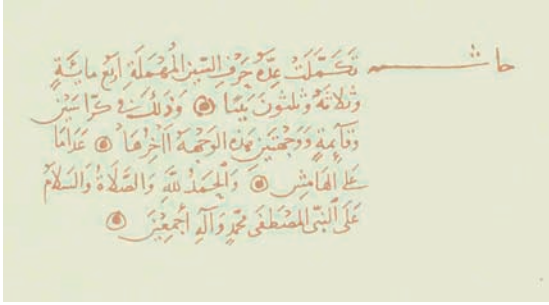 حاشــــــية تكمَّلَتْ عِدّة حَرفِ السّين المُهْمَلَةِ اربَع مايئَةٍ
وثَلاثَة وثلثونَ بَيتًا ۞ وَذَلِكَ في كرّاسَيْن
وقآيمةٍ وَوَجهتَين هَذه الوَجهَة اآخِرُهَا ۞ عَدَامَا
عَلى الهَامِش ۞ وَالحَمدُ للَّهِ وَالصَّلَاةُ وَالسَّلَامُ
عَلَى النَّبيّ المُصْطَفَى مُحَمَّدٍ وَآلِهِ أَجْمَعِيْنَ ۞